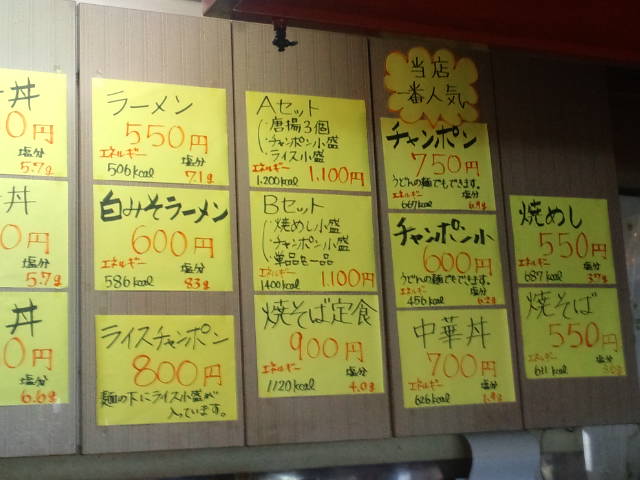 丼
0円
塩分
5.7g
丼
0円
塩分
5.7g
丼
0円
塩分
6.6g
ラーメン
550円
エネルギー 塩分
506kcal 7.1g
白みそラーメン
600円
エネルギー 塩分
586kcal 8.3g
ライスチャンポン
800円
麺の下にライス小盛が
入っています。
Aセット
・唐揚3個
・チャンポン小盛
・ライス小盛
エネルギー
1,200kcal 1,100円
Bセット
・焼めし小盛
・チャンポン小盛
・単品を一品
エネルギー
1400kcal 1,100円
焼そば定食
900円
エネルギー 塩分
1120kcal 4.0g
当店
一番人気
チャンポン
750円
うどんの麺でもできます。
エネルギー 塩分
667kcal
チャンポン小
600円
うどんの麺でもできます。
エネルギー 塩分
456kcal 6.2g
中華丼
700円
エネルギー 塩分
626kcal 1.9g
焼めし
550円
エネルギー 塩分
687kcal 3.7g
焼そば
550円
エネルギー 塩分
611kcal